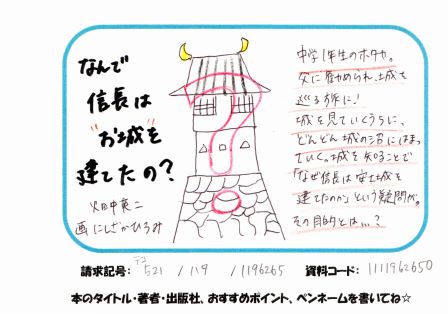 なんで
信長は
"お城を"
建てたの?
畑中英二
画 にしざかひろみ
中学1年生のホタカ。
父に勧められ、城を
巡る旅に!
城を見ていくうちに、
どんどん城の沼にはまっ
ていく。城を知ることで
「なぜ信長は安土城を
建てたのか」という疑問が。
その目的とは…?
請求記号: テコ521 / 119 / 1196265 資料コード: 1111962650
本のタイトル・著者・出版社、おすすめポイント、ペンネームを書いてね☆